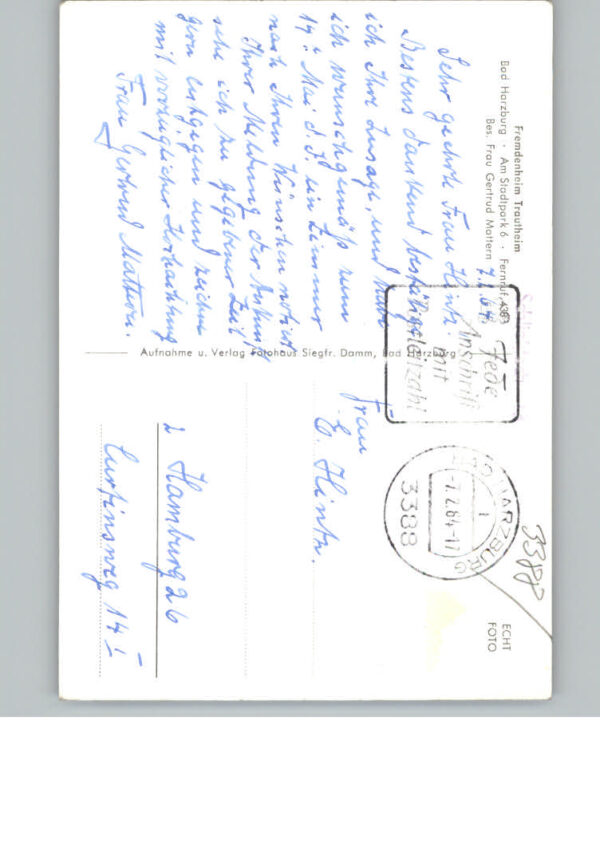 Fremdenheim Trautheim
Bad Harzburg · Am Stadtpark 6 · Fernruf 4383
Bes. Frau Gertrud Mattern
Sehr geehrte Frau Hintz.
Bestens dankend bestätige
ich Ihre Zusage, und habe
ich wunschgemäß zum
19. Mai d. J. ein Zimmer
nach Ihren Wünschen notiert
Ihrer Meldung der Ankunft
sehe ich zu gegebener Zeit
gern entgegen und zeichne
mit vorzüglicher Hochachtung
Frau Gertrud Mattern.
Aufnahme u. Verlag Fotohaus Siegfr. Damm, Bad Harzburg
Jede
Anschrift
mit
Postleitzahl
BAD HARZBURG
1
-7.2.64-17
3388
3388
ECHT
FOTO
Frau
E. Hintz.
2 Hamburg 26
14 I